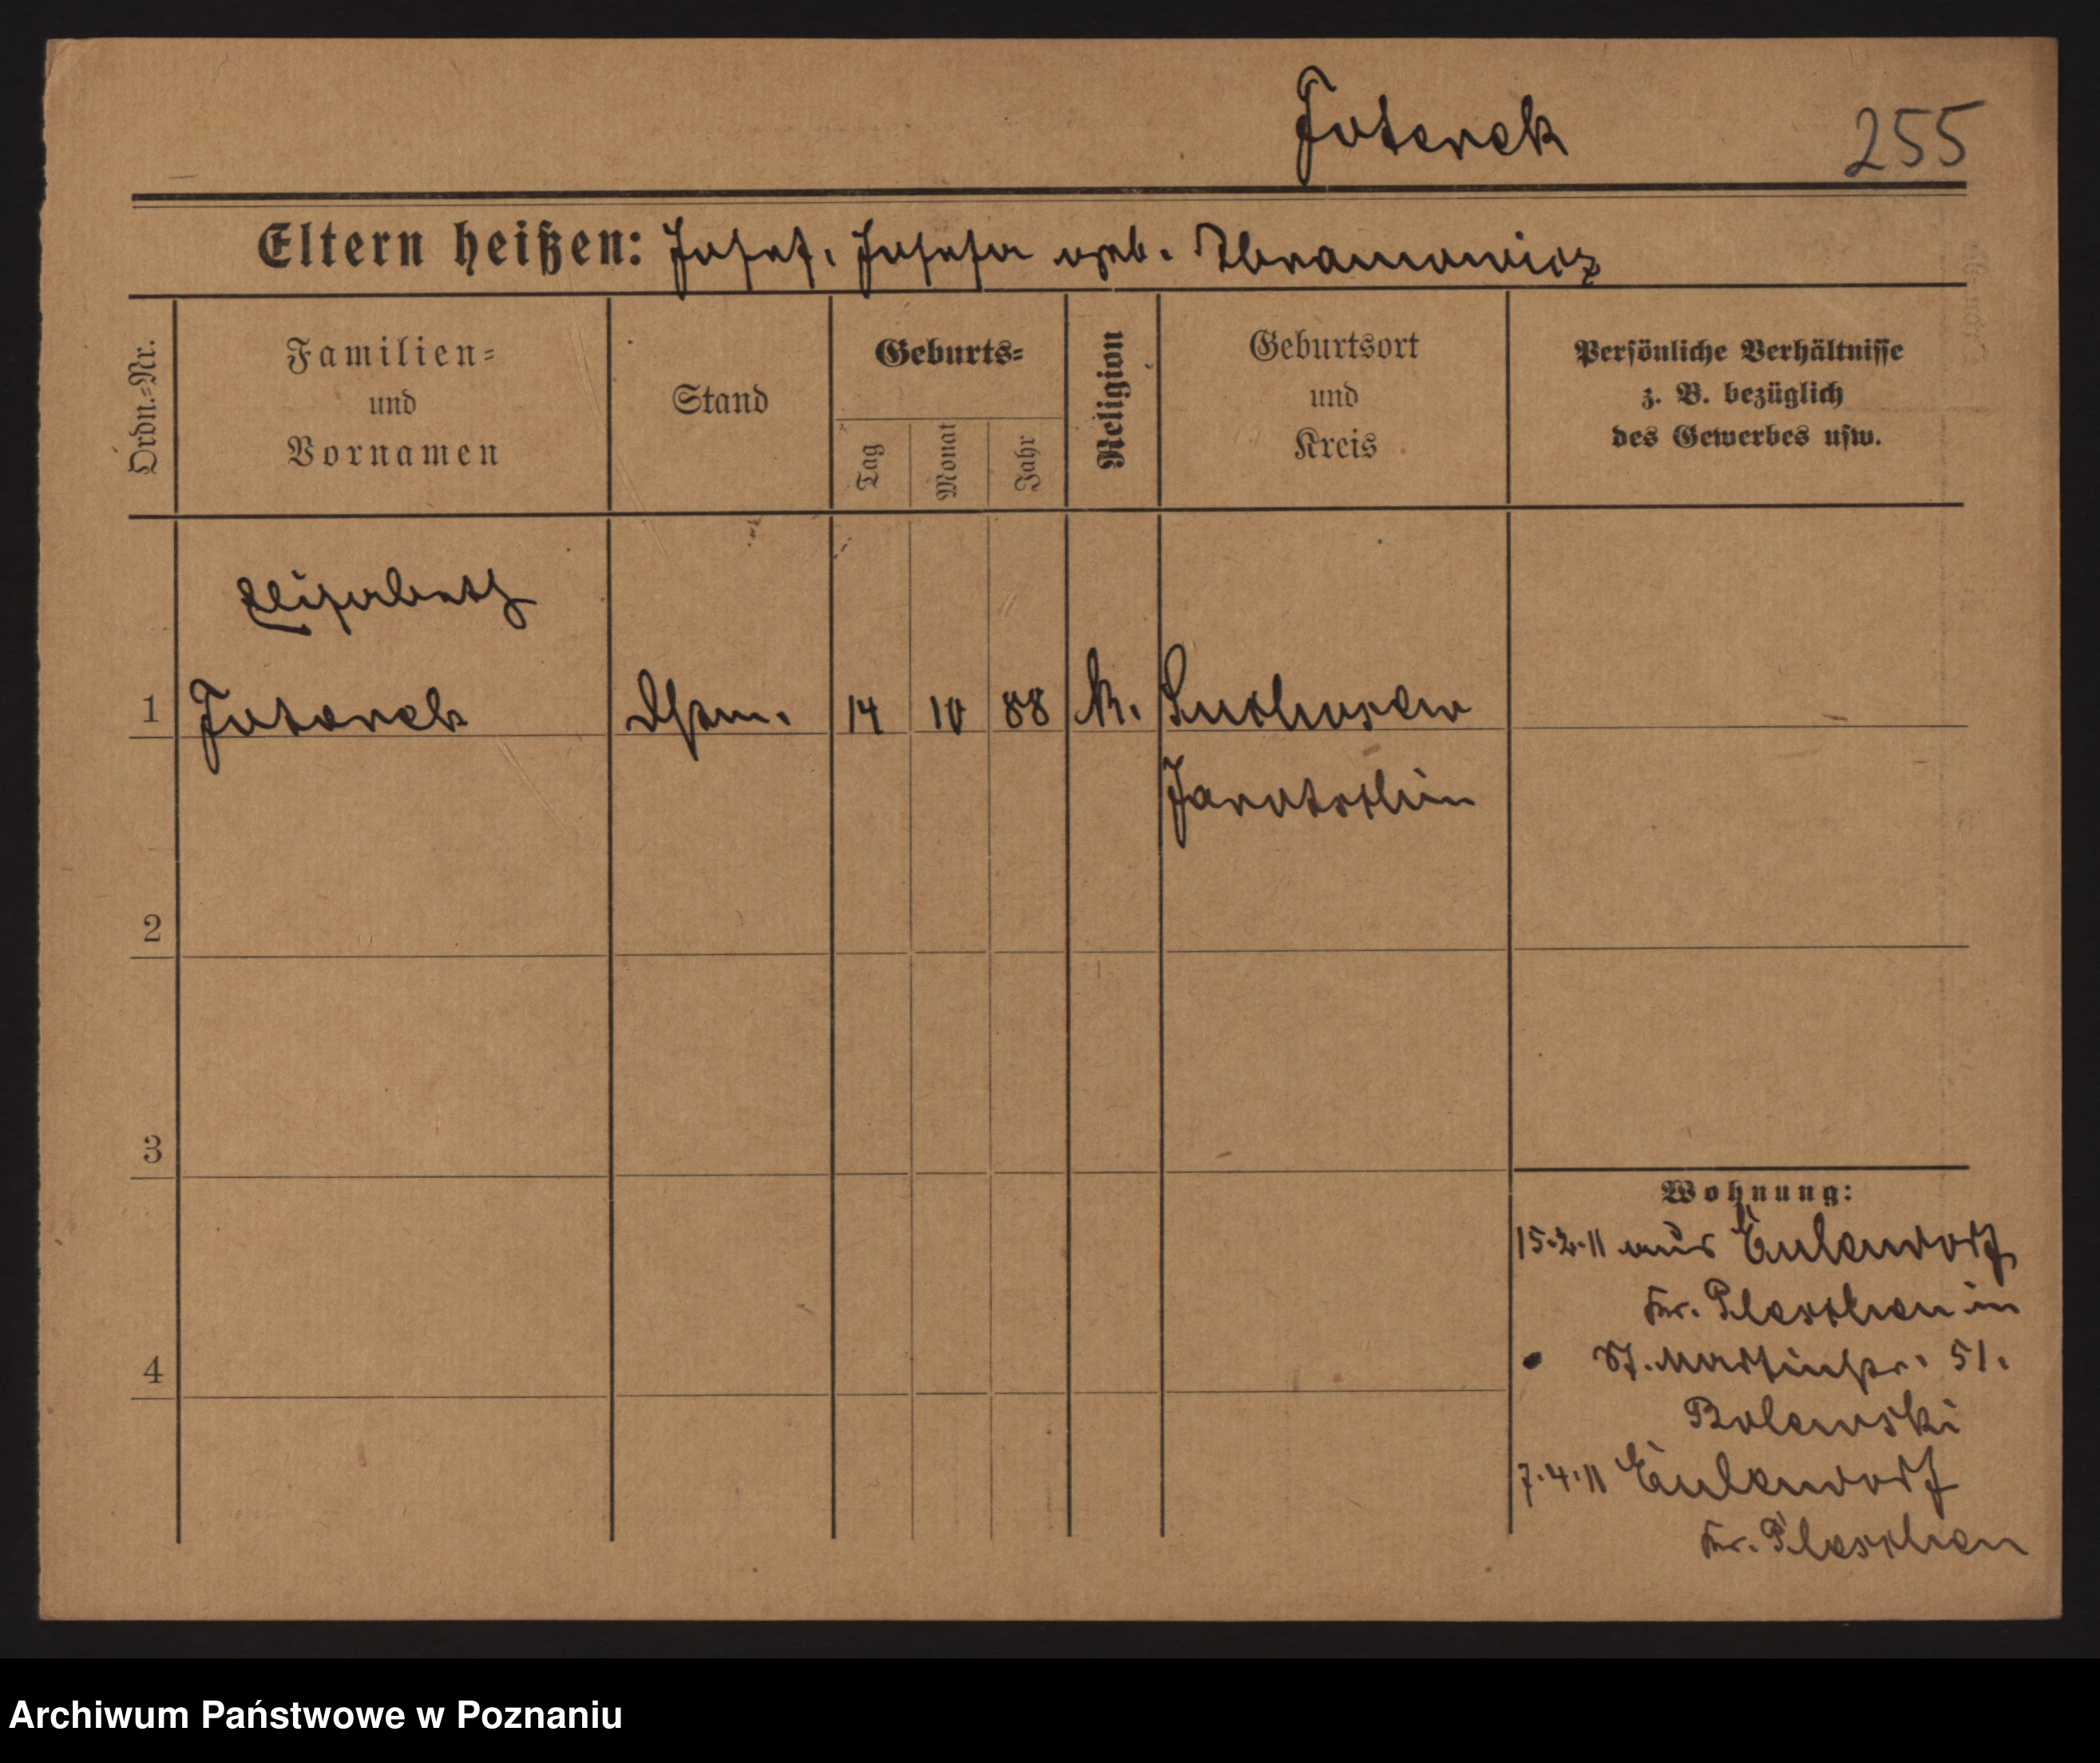 Foterek 255
Eltern heißen: Josef. Josefa geb. Abramowicz
Ordn.-Nr.
Familien-
und
Vornamen
Stand
Geburts-
Tag
Monat
Jahr
Religion
Geburtsort
und
Kreis
Persönliche Verhältnisse
z. B. bezüglich
des Gewerbes usw.
Elisabeth
1 Foterek 14 10 88 k. Suchorzew
Jarotschin
2
3
4
Wohnung:
15.2.11 aus Eulendorf
Kr. Pleschen in
St. Martinstr. 51.
Bolewski
7.4.11 Eulendorf
Kr. Pleschen
Archiwum Państwowe w Poznaniu